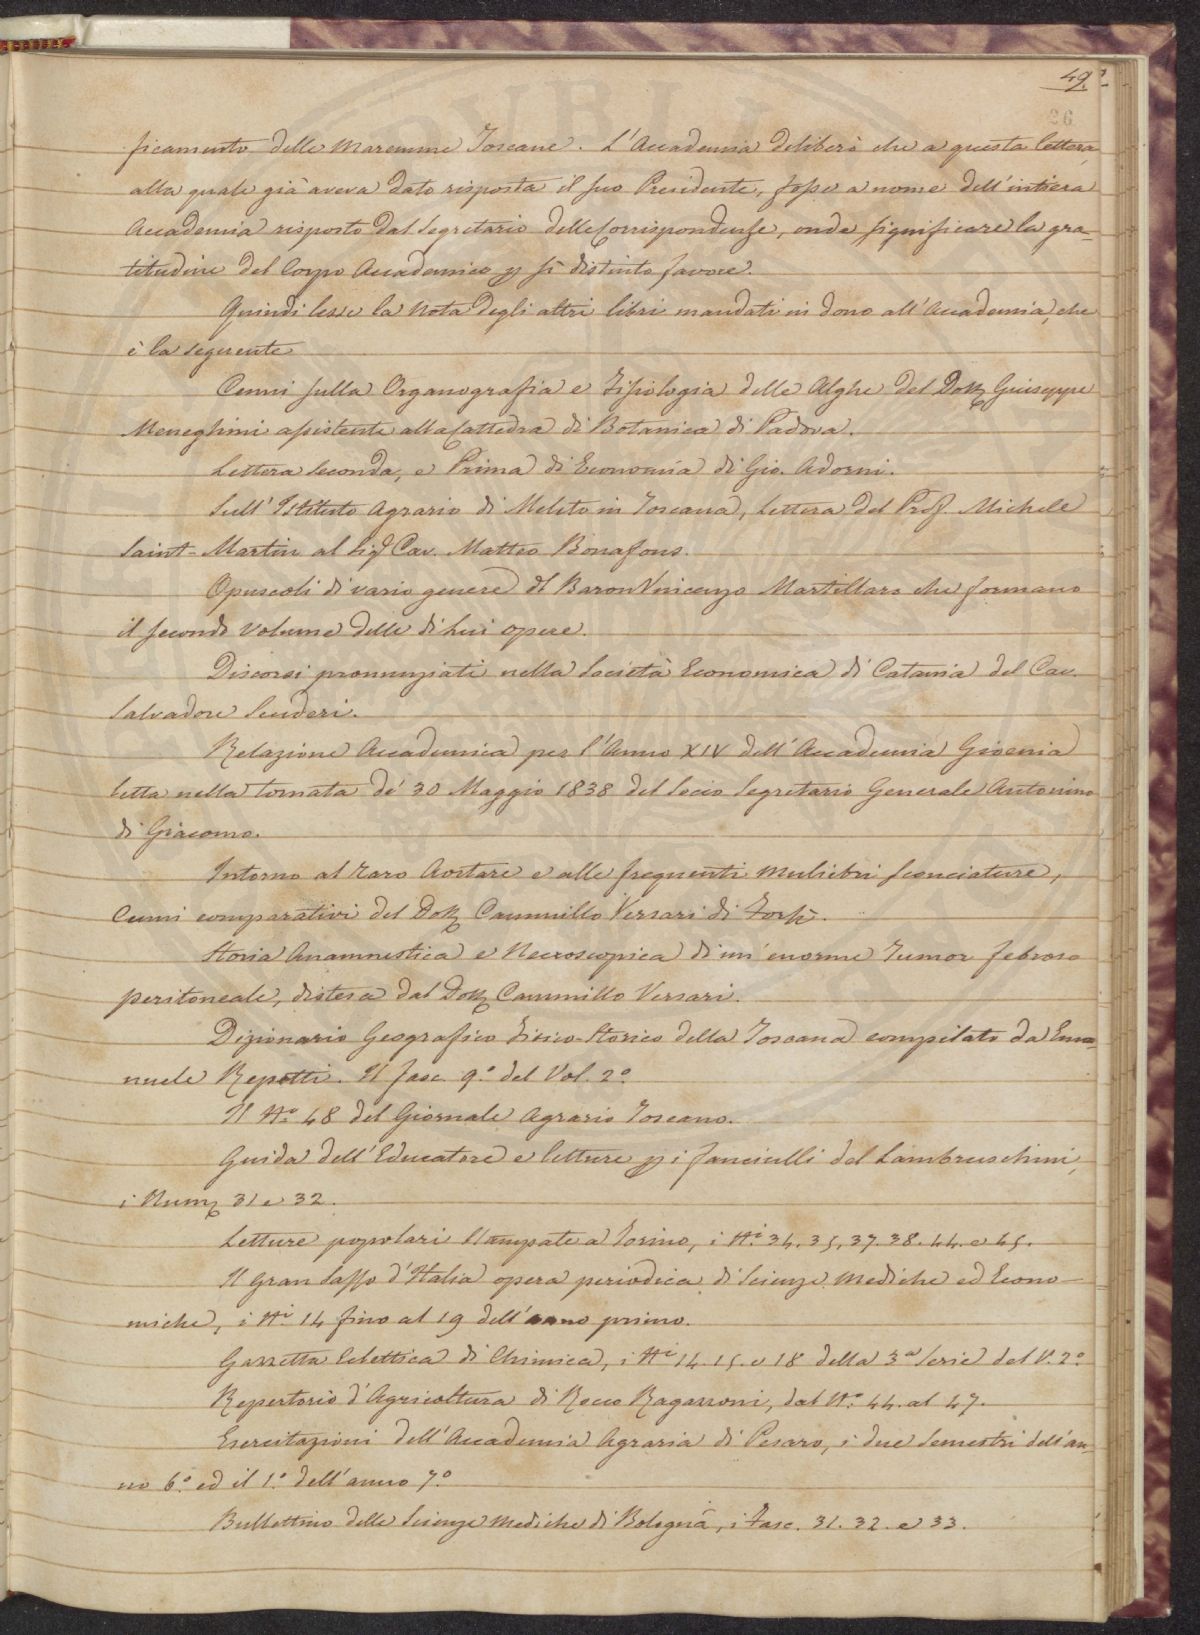 49.
26
ficamento delle Maremme Toscane. L'Accademia deliberò che a questa lettera,
alla quale già aveva dato risposta il suo Presidente, fosse a nome dell'intiera
Accademia risposto dal Segretario delle Corrispondenze, onde significare la gra-
titudine del Corpo Accademico p sì distinto favore.
Quindi lesse la Nota degli altri libri mandati in dono all'Accademia, che
è la seguente
Cenni sulla Organografia e Fisiologia delle Alghe del Dott Giuseppe
Meneghini assistente alla Cattedra di Botanica di Padova.
Lettera Seconda, e Prima di Economia di Gio. Adorni.
Sull'Istituto Agrario di Meleto in Toscana, Lettera del Prof. Michele
Saint-Martin al Sig Cav. Matteo Bonafous.
Opuscoli di vario genere del Baron Vincenzo Mortillaro che formano
il secondo Volume delle di lui opere.
Discorsi pronunziati nella Società Economica di Catania del Cav.
Salvadore Scuderi.
Relazione Accademica per l'Anno XIV dell'Accademia Gioenia
letta nella tornata de' 30 Maggio 1838 del Socio Segretario Generale Antonino
di Giacomo.
Intorno al raro Aortare e alle frequenti muliebri sconciature,
Cenni comparativi del Dott Cammillo Versari di Forlì.
Storia Anamnestica e Necroscopica di un'enorme Tumor febroso
peritoneale, distesa dal Dott Cammillo Versari.
Dizionario Geografico Fisico-Storico della Toscana compilato da Ema-
nuele Repetti. Il fasc. 9.° del Vol. 2.°
Il N.° 48 del Giornale Agrario Toscano.
Guida dell'Educatore e letture p i fanciulli del Lambruschini,
i Num 31 e 32.
Letture popolari Stampate a Torino, i N.i 34. 35, 37. 38. 44. e 45.
Il Gran Sasso d'Italia opera periodica di Scienze Mediche ed Econo-
miche, i N.i 14 fino al 19 dell'anno primo.
Gazzetta Eclettica di Chimica, i N.i 14. 15. e 18 della 3.a Serie del V. 2.°
Repertorio d'Agricoltura di Rocco Ragazzoni, dal N.° 44. al 47.
Esercitazioni dell'Accademia Agraria di Pesaro, i due Semestri dell'an-
no 6.° ed il 1.° dell'anno 7.°
Bullettino delle Scienze Mediche di Bologna, i Fasc. 31. 32. e 33.